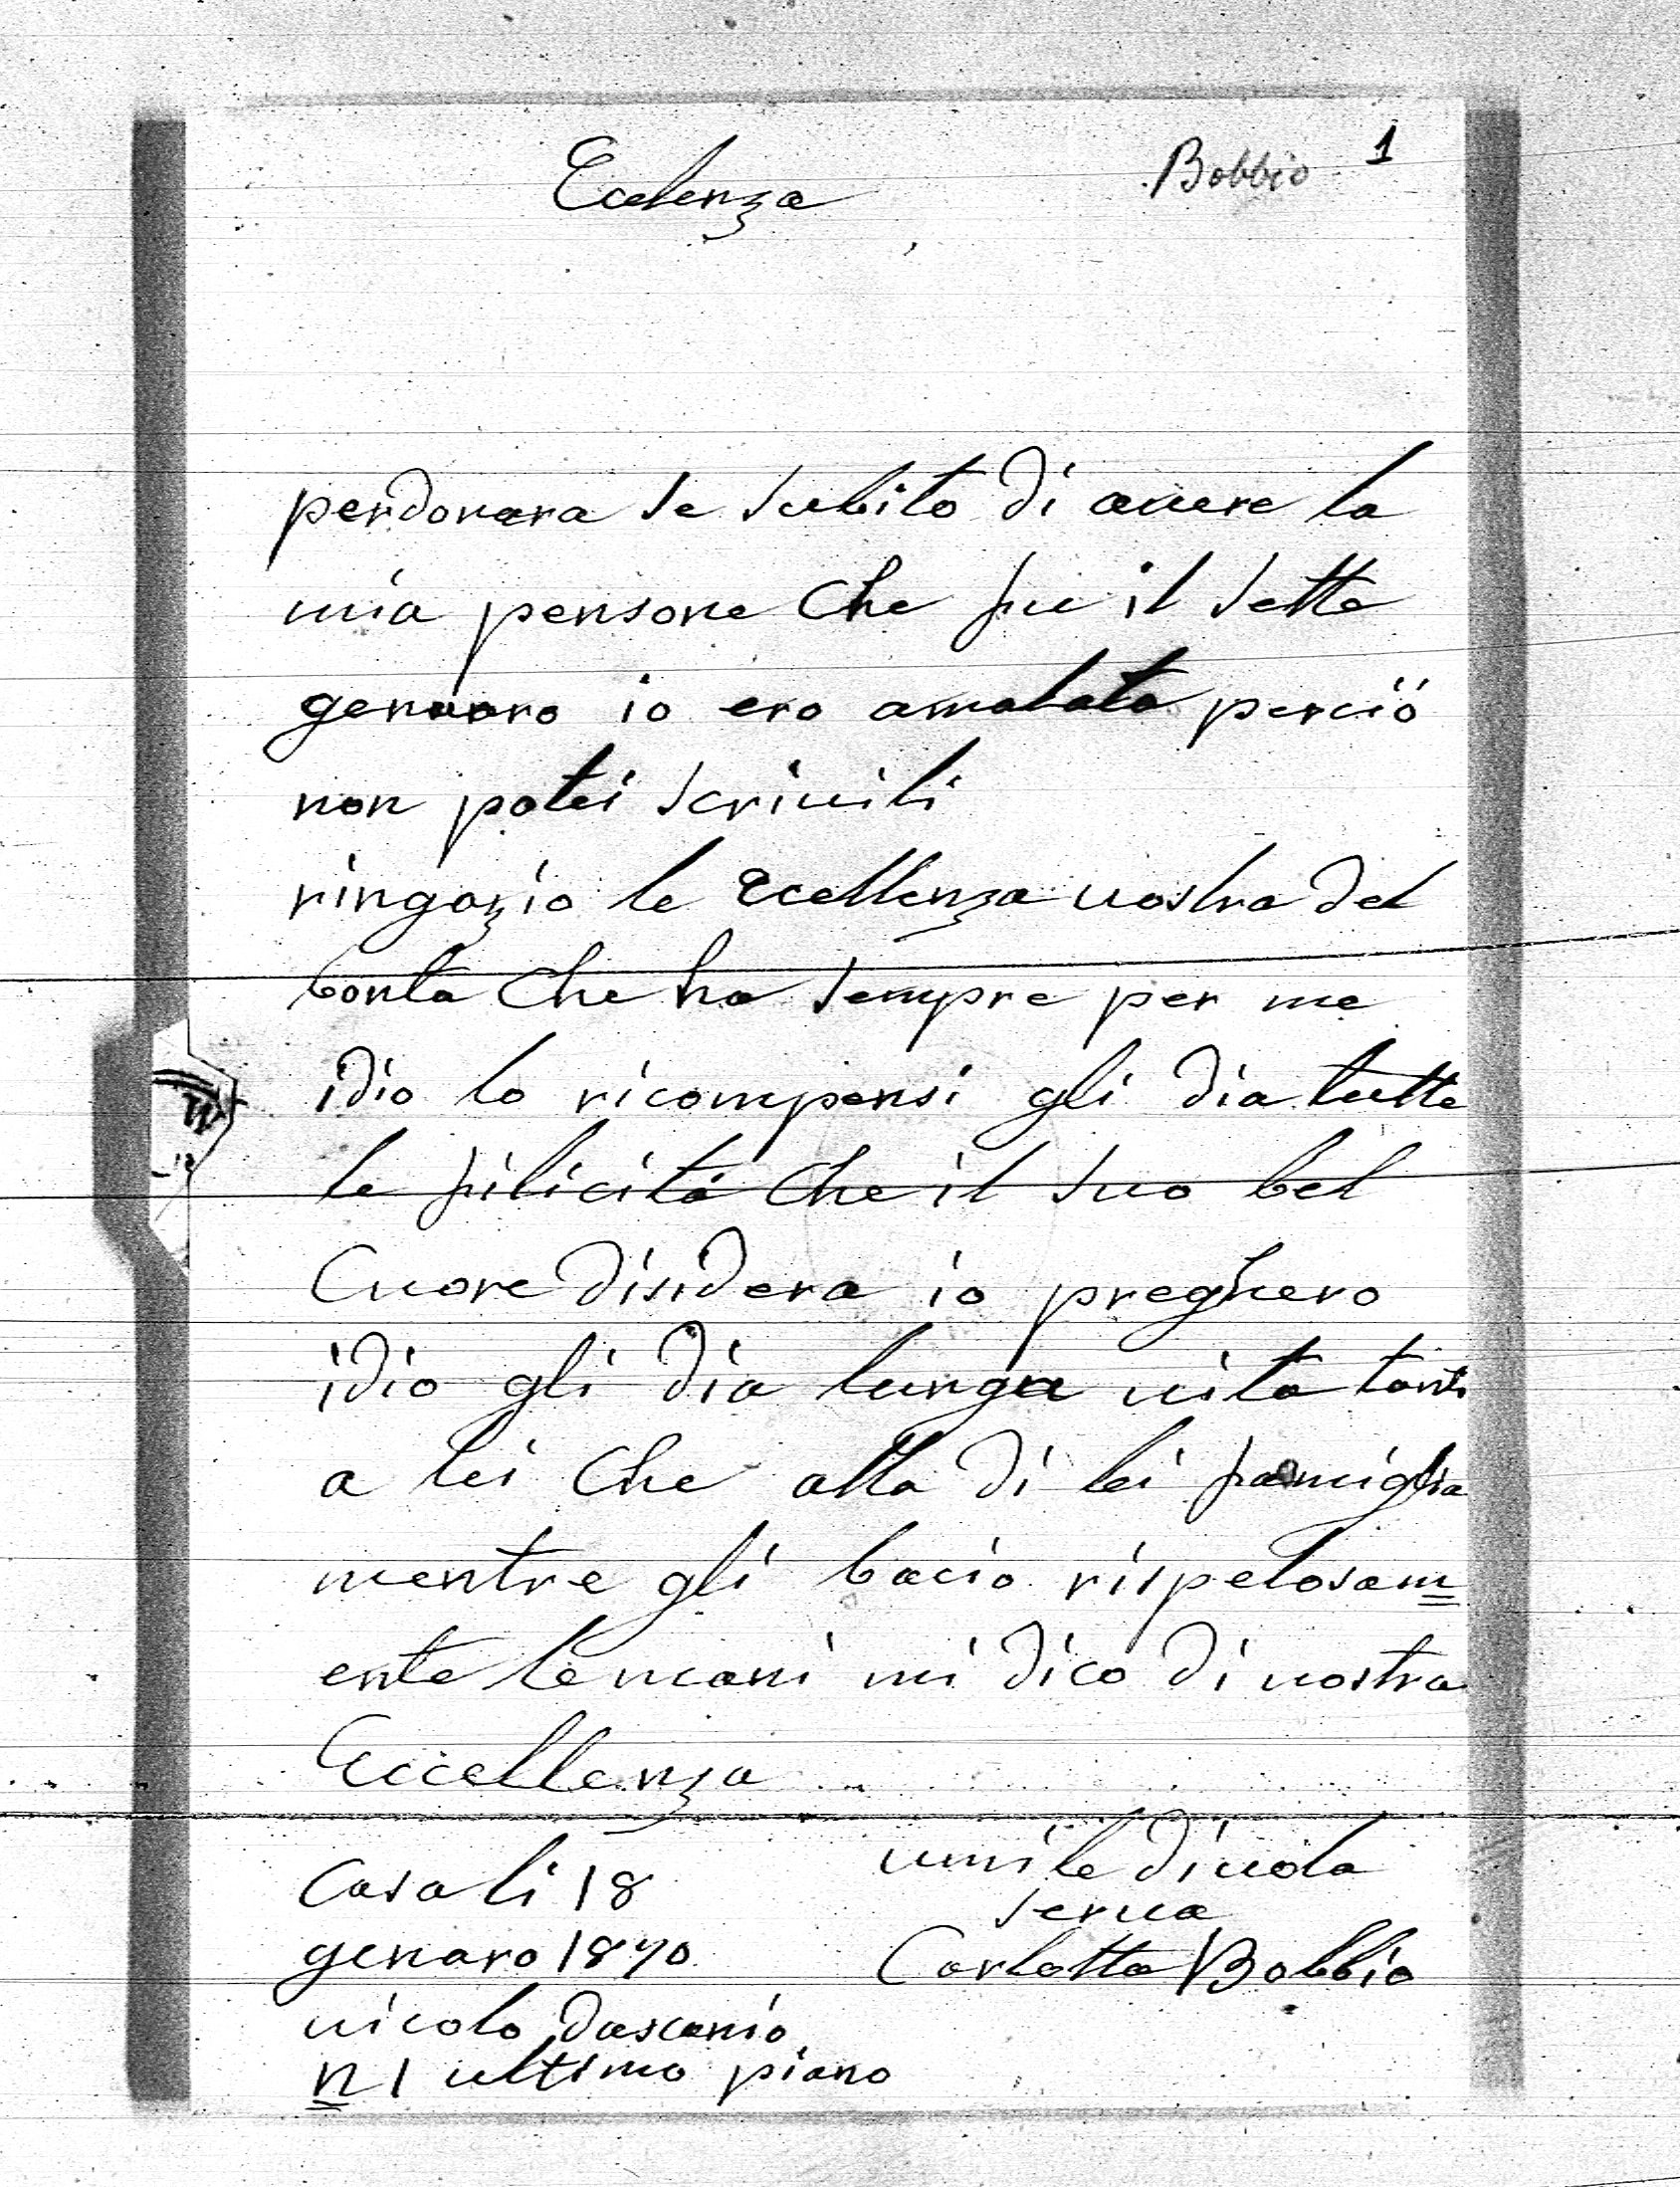 Bobbio 1
Ecelenza
perdonera se subito di avere la
mia persone che fu il sette
genaro io ero amalata perciò
non potei scrivili
ringazio le Ecellenza vostra del
bonta che ha sempre per me
idio lo ricompensi gli dia tutte
le filicità che il suo bel
Cuore disidera io preghero
idio gli dia lunga vita tanto
a lei che alla di lei famiglia
mentre gli bacio rispetosam
ente le mani mi dico di vostra
Eccellenza
Casali 18
genaro 1870
vicolo dascanio
n 1 ultimo piano
umile divola
serva
Carlotta Bobbio